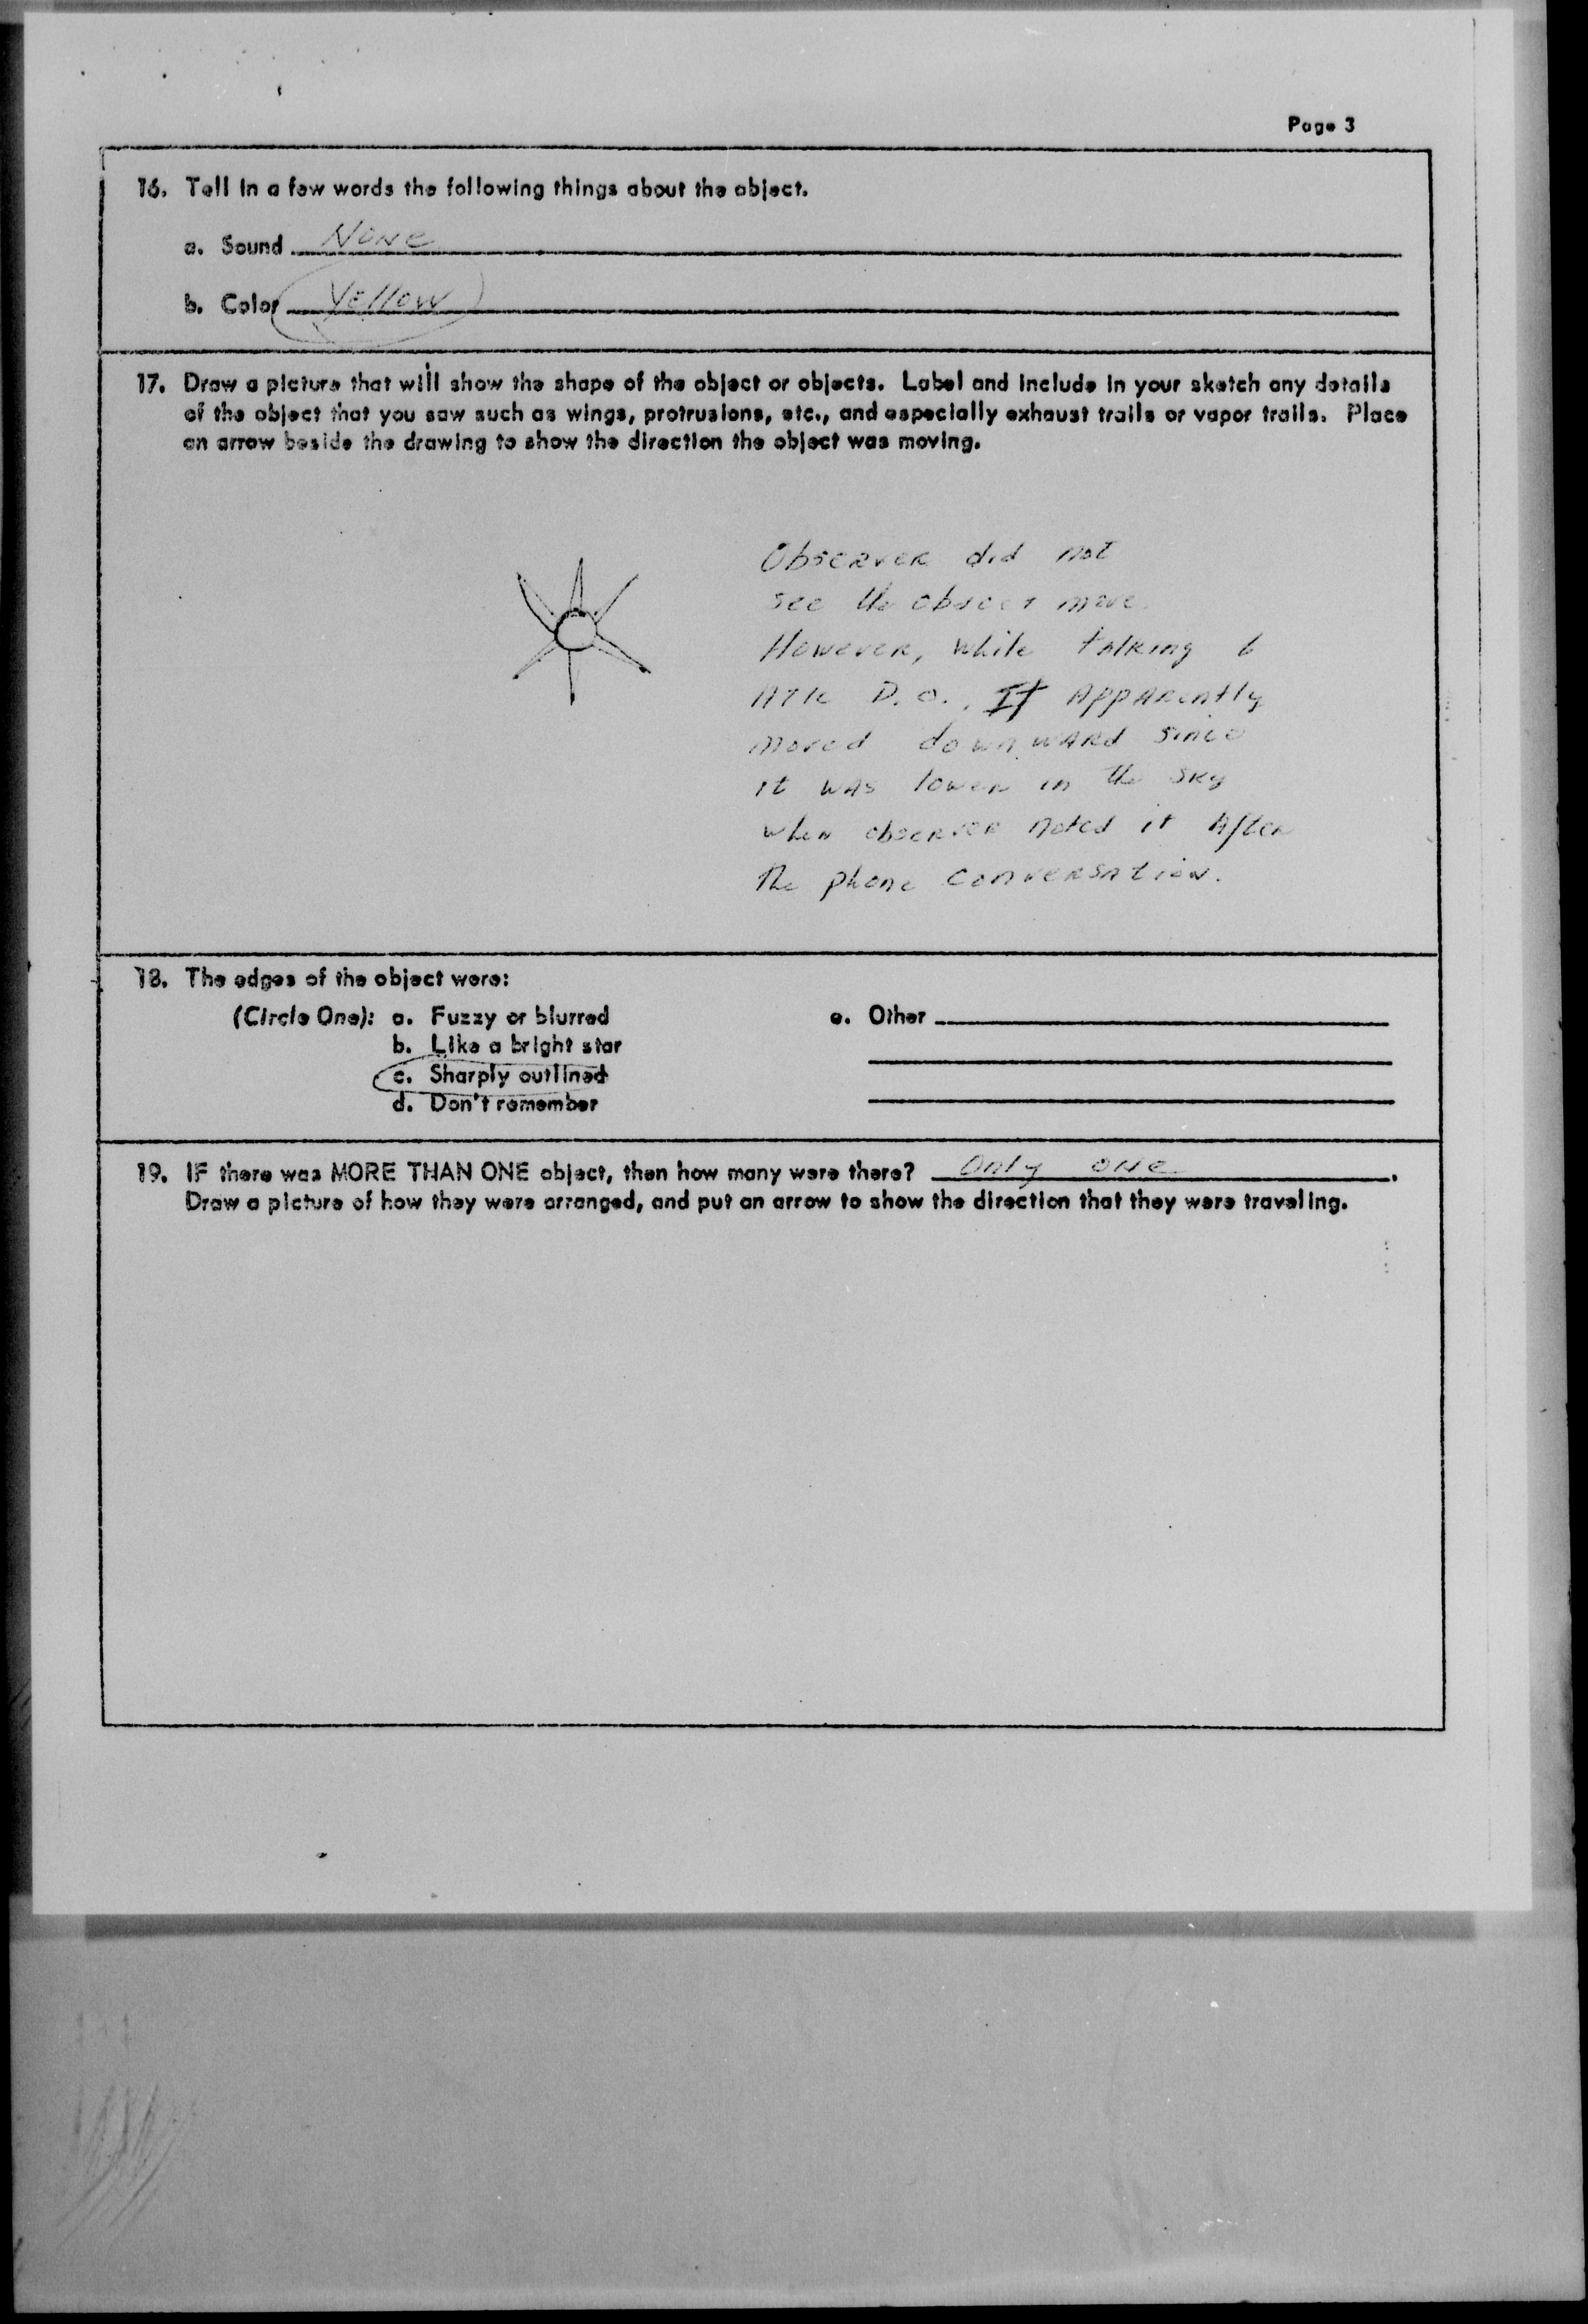 Page 3
16. Tell in a few words the following things about the object.
a. Sound None
b. Color Yellow
17. Draw a picture that will show the shape of the object or objects. Label and include in your sketch any details
of the object that you saw such as wings, protrusions, etc., and especially exhaust trails or vapor trails. Place
an arrow beside the drawing to show the direction the object was moving.
Observer did not
see the object move.
However, while talking
D.O., It Apparently
moved downward since
it was lower in the sky
when observer noted it After
The phone conversation.
18. The edges of the object were:
(Circle One): a. Fuzzy or blurred
b. Like a bright star
c. Sharply outlined
d. Don't remember
e. Other
19. IF there was MORE THAN ONE object, then how many were there? Only one.
Draw a picture of how they were arranged, and put an arrow to show the direction that they were traveling.